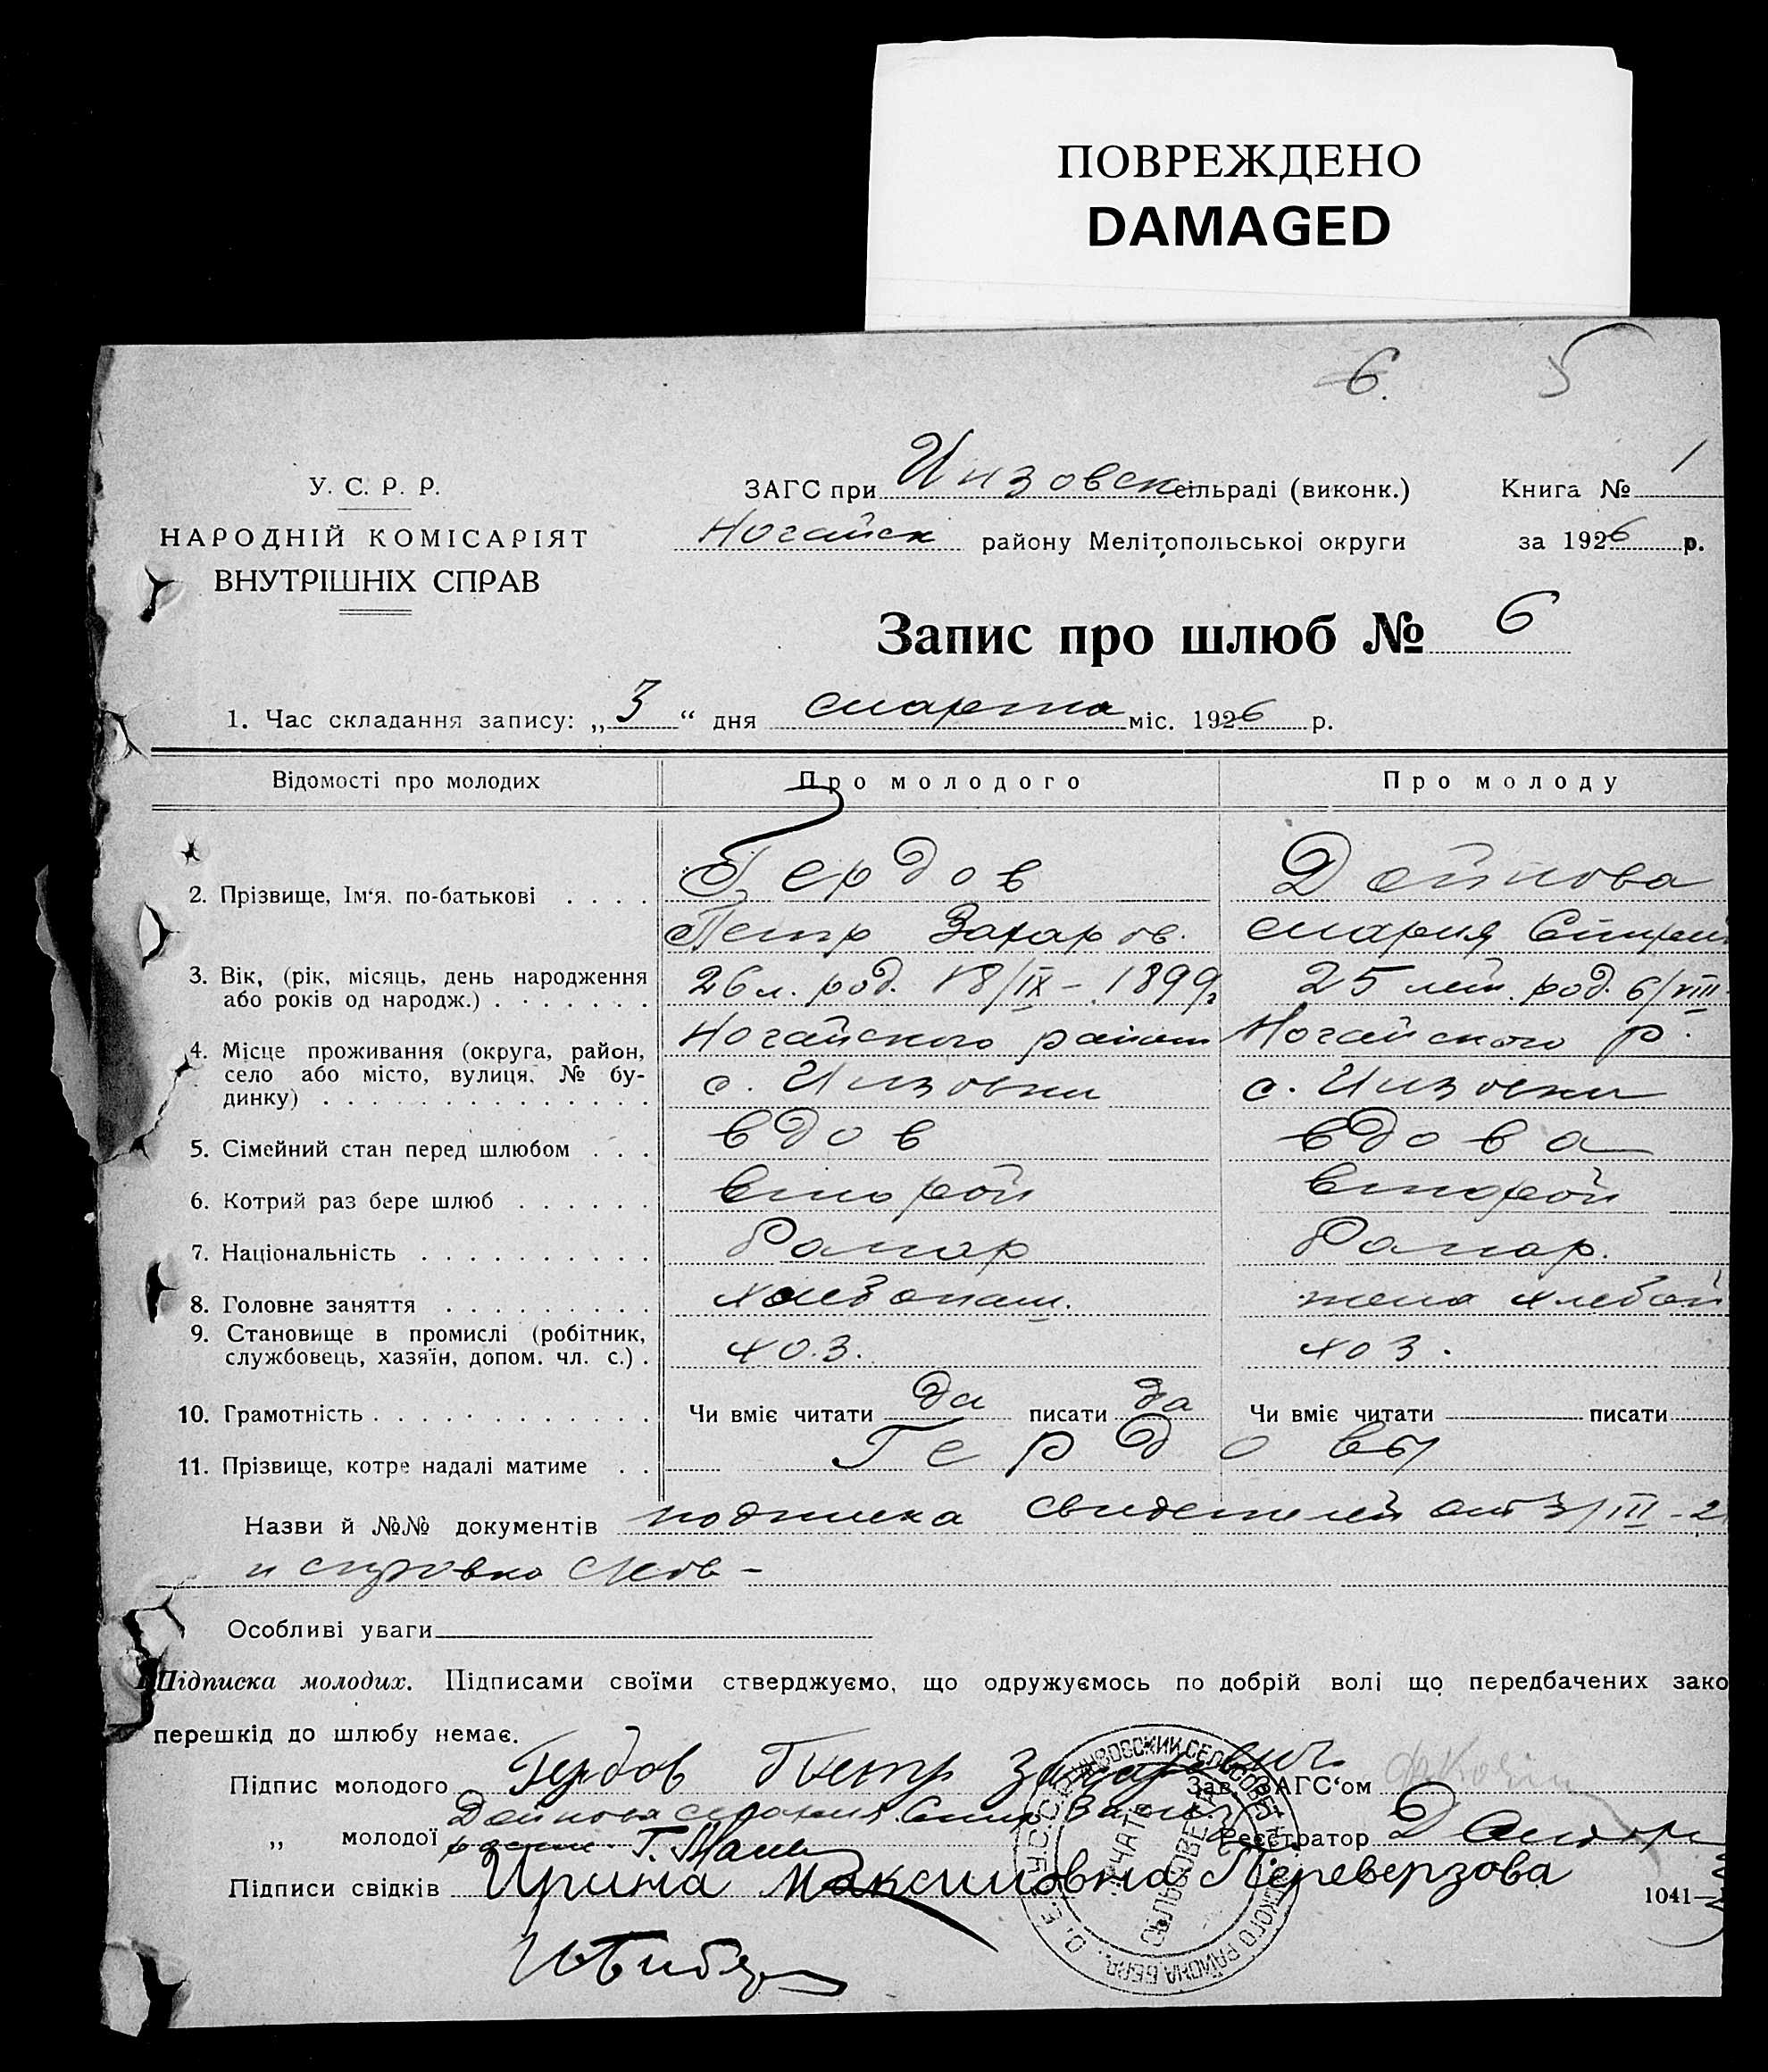 ПОВРЕЖДЕНО
DAMAGED
6. 5
У. С. Р. Р.
НАРОДНІЙ КОМІСАРІЯТ
ВНУТРІШНІХ СПРАВ
ЗАГС при Инзовск сільраді (виконк.) Книга № 1
Ногайск району Мелітопольської округи за 1926 р.
Запис про шлюб № 6
1. Час складання запису: „ 3 “ дня марта міс. 1926 р.
Відомості про молодих Про молодого Про молоду
2. Прізвище, Ім‘я, по-батькові . . . . Гердов Дойнова
Петр Захаров. Мария
3. Вік, (рік, місяць, день народження
або років од народж.) . . . . . . . 26 л. род. 18/IX – 1899 г. 25 лет. род. 6/VIII
4. Місце проживання (округа, район,
село або місто, вулиця, № бу-
динку) . . . . . . . . . . . . . . .
Ногайского района Ногайского р.
с. Инзовки с. Инзовки
5. Сімейний стан перед шлюбом . . . вдов вдова
6. Котрий раз бере шлюб . . . . . . второй второй
7. Національність . . . . . . . . . .
8. Головне заняття . . . . . . . . . хлебопаш. жена хлебоп
9. Становище в промислі (робітник,
службовець, хазяїн, допом. чл. с.) . хоз. хоз.
10. Грамотність . . . . . . . . . . . . Чи вміє читати да писати да Чи вміє читати писати
11. Прізвище, котре надалі матиме . . Гердовы
Назви й №№ документів подписка свидетелей от 3/III – 2
и справка
Особливі уваги
Підписка молодих. Підписами своїми стверджуємо, що одружуємось по добрій волі що передбачених зако
перешкід до шлюбу немає.
Підпис молодого Гердов Петр Захаревич Зав. ЗАГС‘ом
„ молодої Дойнова Реєстратор
Підписи свідків Ирина Максимовна Переверзова
1041—